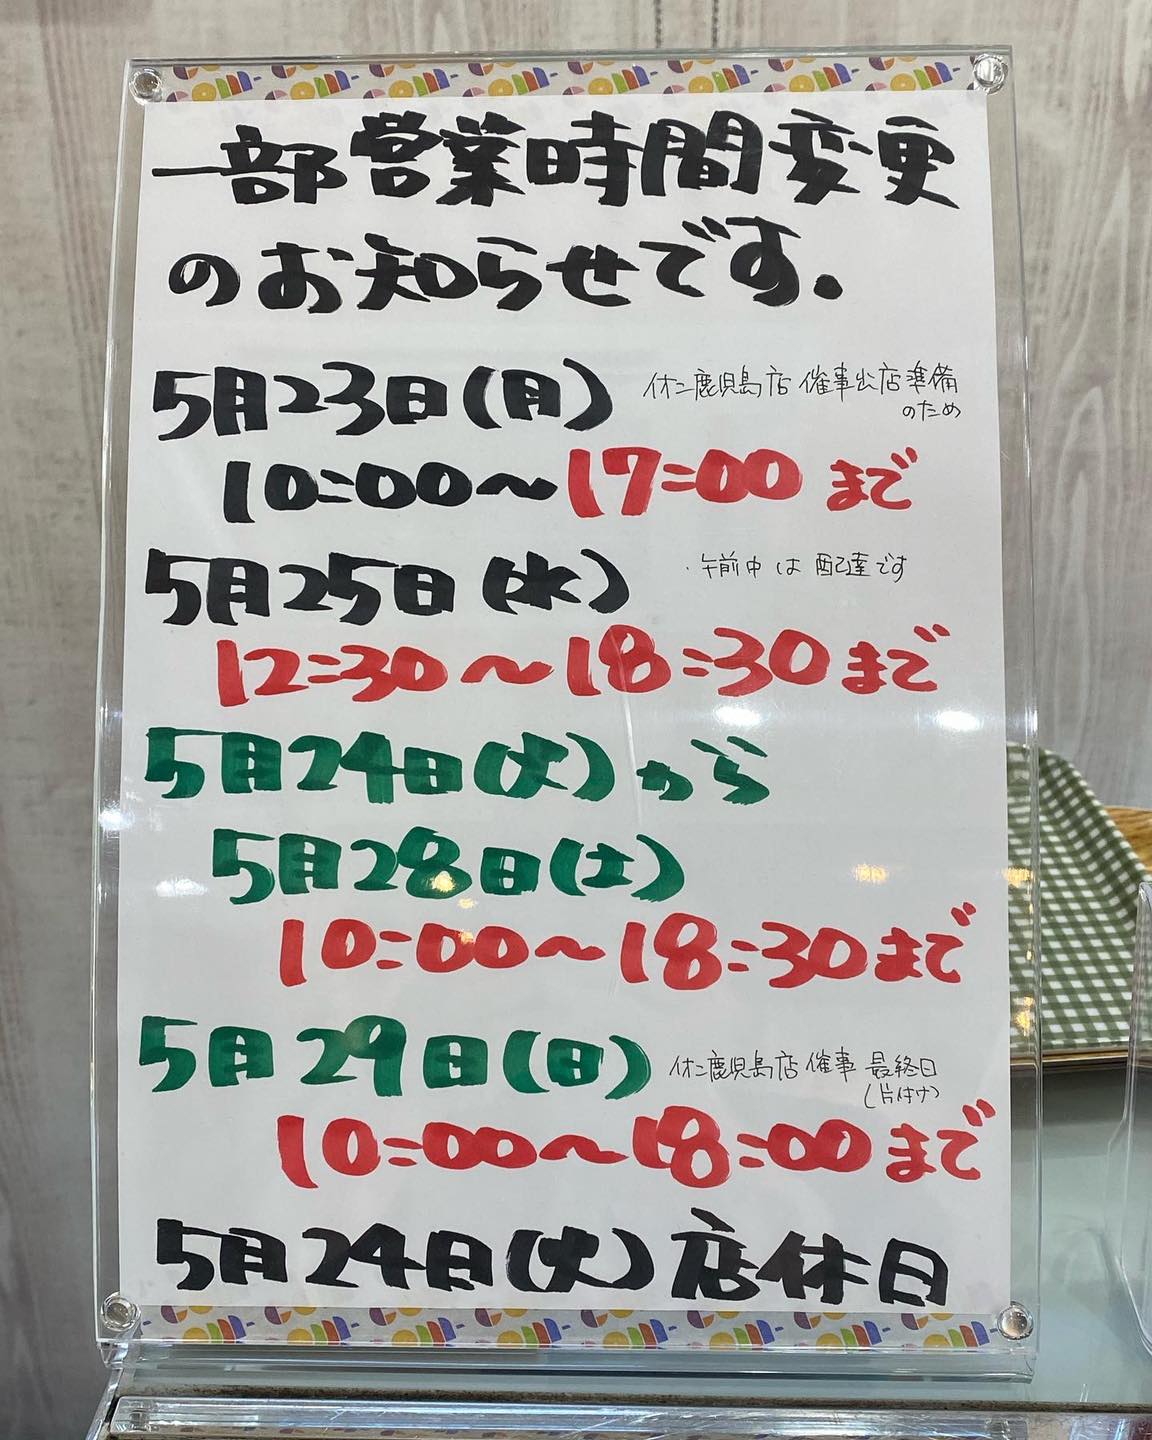 一部営業時間変更
のお知らせです.
5月23日(月) イオン鹿児島店 催事出店準備
のため
10:00〜17:00 まで
5月25日(水) ・午前中は配達です
12:30〜18:30まで
5月24日(火)から
5月28日(土)
10:00〜18:30まで
5月29日(日) イオン鹿児島店催事 最終日
(片付け)
10:00〜18:00まで
5月24日(火)店休日